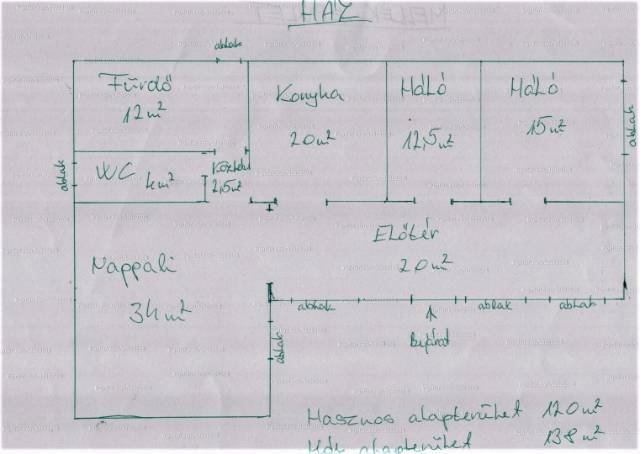 HÁZ
ablak
Fürdő
12 m²
Konyha
20 m²
Háló
12,5 m²
Háló
15 m²
ablak
ablak
WC
4 m²
Közleked
2,5 m²
Előtér
20 m²
Nappali
34 m²
ablak
ablak
ablak
ablak
Bejárat
Hasznos alapterület 120 m²
alapterület 138 m²